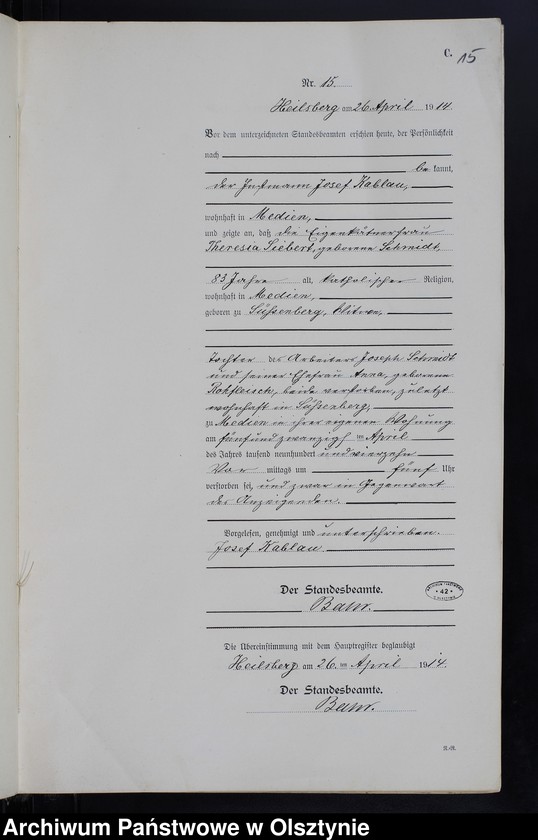 C.
15
Nr. 15.
Heilsberg am 26 April 1914.
Vor dem unterzeichneten Standesbeamten erschien heute, der Persönlichkeit
nach
be kannt,
der Instmann Josef Kablau,
wohnhaft in Medien,
und zeigte an, daß die Eigenkätnerfrau
Theresia Siebert, geborene Schmidt,
83 Jahre alt, katholischer Religion,
wohnhaft in Medien,
geboren zu Süssenberg, Witwe,
Tochter des Arbeiters Joseph Schmidt
und seiner Ehefrau Anna, geborene
Rohfleisch, beide verstorben, zuletzt
wohnhaft in Süssenberg,
zu Medien in ihrer eigenen Wohnung
am fünfundzwanzigsten April
des Jahres tausend neunhundert und vierzehn
Vor mittags um fünf Uhr
verstorben sei, und zwar in Gegenwart
des Anzeigenden.
Vorgelesen, genehmigt und unterschrieben.
Josef Kablau
Der Standesbeamte.
42
Die Übereinstimmung mit dem Hauptregister beglaubigt
Heilsberg am 26. ten April 1914.
Der Standesbeamte.
Archiwum Państwowe w Olsztynie